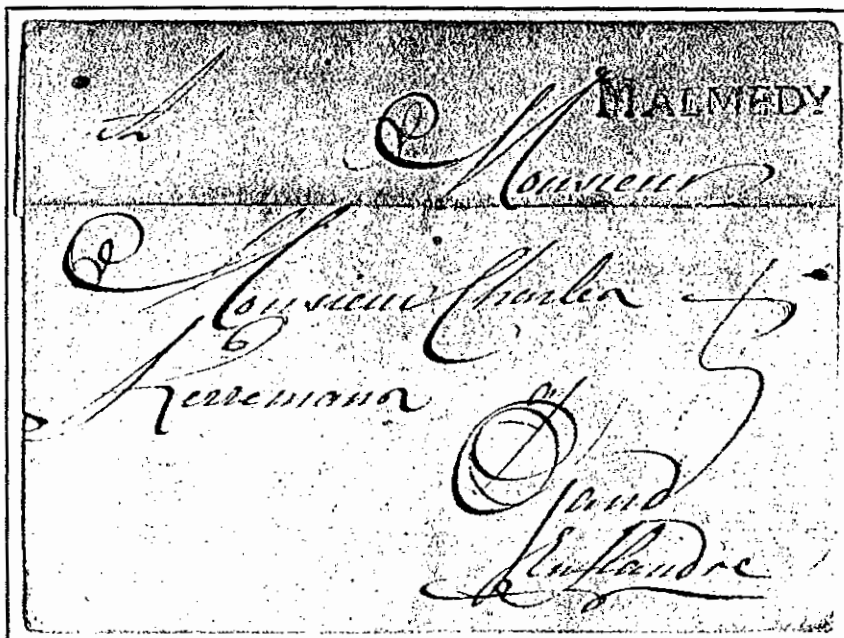 MALMEDY
Monsieur
Monsieur Charles
Kerremans
Gand
En flandre